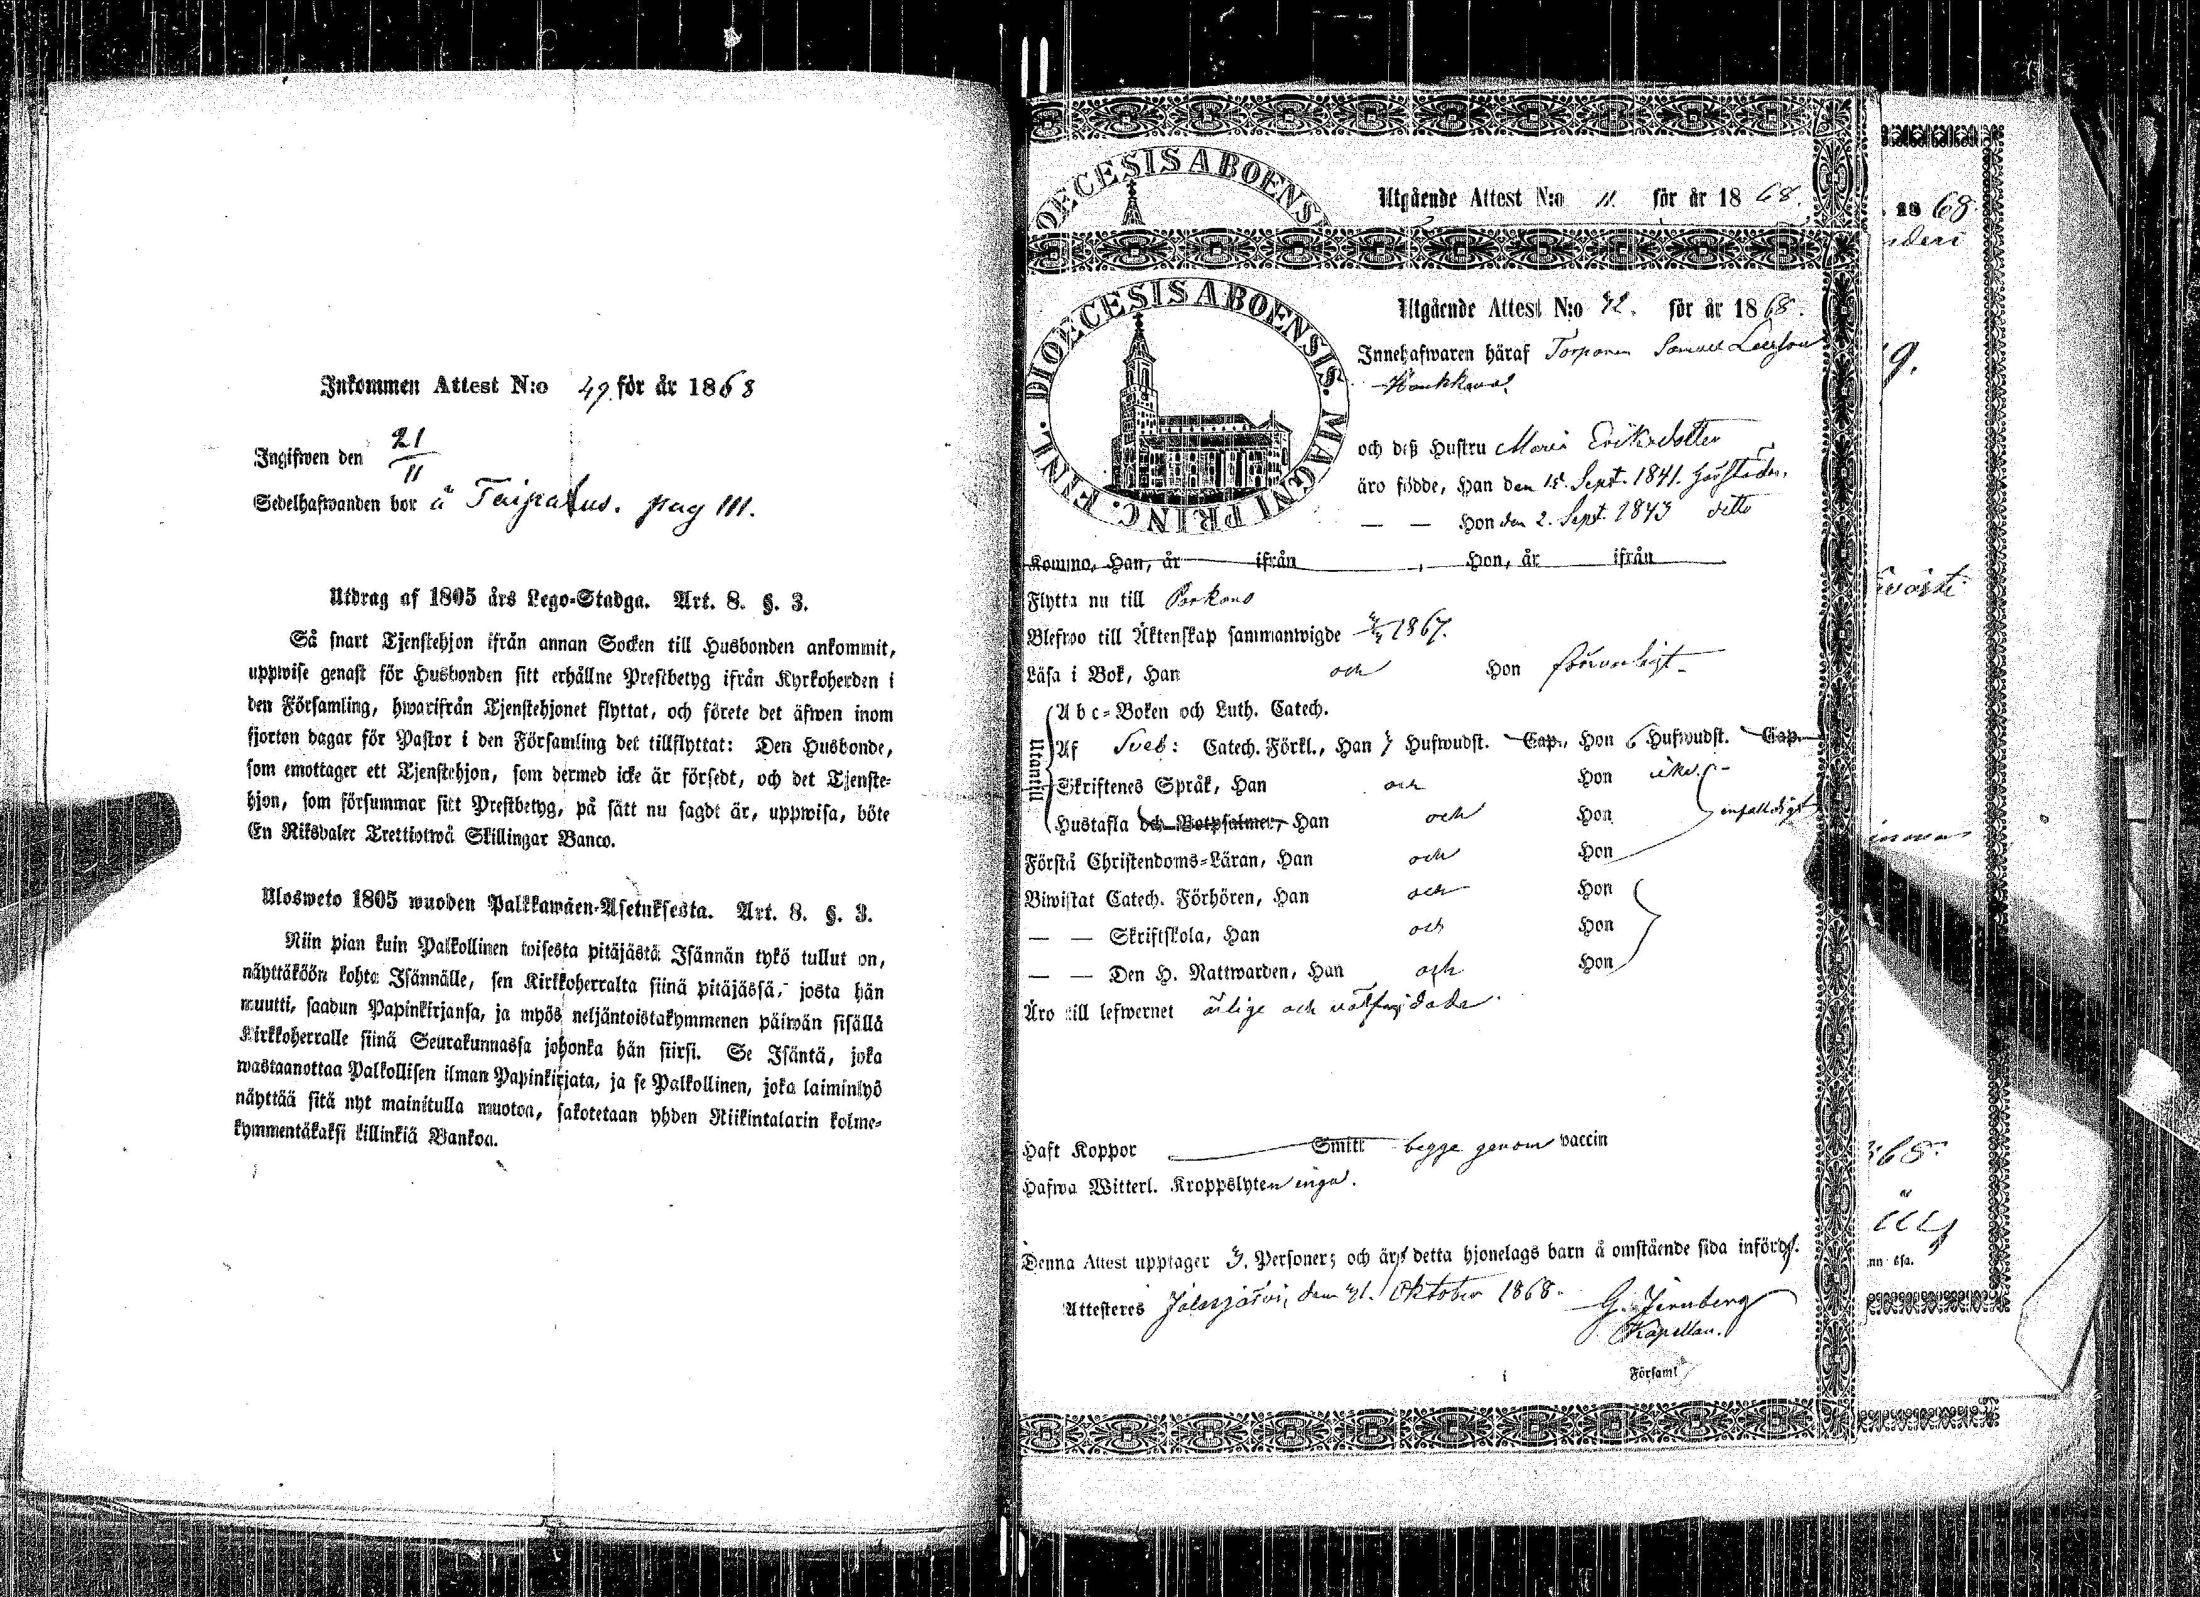 Inkommen Attest N:o 49. för år 1868
Ingifwen den 21/11
Sedelhafwanden bor å Taipalus. pag 111.
Utdrag af 1805 års Lego-Stadga. Art. 8. §. 3.
Så snart Tjenstehjon ifrån annan Socken till Husbonden ankommit,
uppwise genast för Husbonden sitt erhållne Prestbetyg ifrån Kyrkoherden i
den Församling, hwarifrån Tjenstehjonet flyttat, och förete det äfwen inom
fjorton dagar för Pastor i den Församling det tillflyttat: Den Husbonde,
som emottager ett Tjenstehjon, som dermed icke är försedt, och det Tjenste-
hjon, som försummar sitt Prestbetyg, på sätt nu sagdt är, uppwisa, böte
En Riksdaler Trettiotwå Skillingar Banco.
Ulosweto 1805 wuoden Palkkawäen-Asetuksesta. Art. 8. §. 3.
Niin pian kuin Palkollinen toisesta pitäjästä Isännän tykö tullut on,
näyttäköön kohta Isännälle, sen Kirkkoherralta siinä pitäjässä, josta hän
muutti, saadun Papinkirjansa, ja myös neljäntoistakymmenen päiwän sisällä
Kirkkoherralle siinä Seurakunnassa johonka hän siirsi. Se Isäntä, joka
wastaanottaa Palkollisen ilman Papinkirjata, ja se Palkollinen, joka laiminlyö
näyttää sitä nyt mainitulla muotoa, sakotetaan yhden Riikintalarin kolme-
kymmentäkaksi killinkiä Bankoa.
DIOECESIS ABOENSI
Utgående Attest N:o 11. för år 1868.
DIOECESIS ABOENSIS. MAGNI PRINC. FINL.
Utgående Attest N:o 42. för år 1868.
Innehafwaren häraf Torparen Samuel
och deß Hustru Maria Eriksdotter
äro födde, Han den 15. Sept. 1841.
— — Hon den 2. Sept. 1843 ditto
Komne, Han, år ifrån , Hon, år ifrån
Flytta nu till Parkano
Blefwo till Äktenskap sammanwigde 1867.
Läsa i Bok, Han och Hon försvarligt
Utantill
Abc-Boken och Luth. Catech.
Af Sveb: Catech. Förkl., Han Hufwudst. Cap., Hon 6 Hufwudst. Cap.
Skriftenes Språk, Han och Hon
Hustafla och Botpsalmer, Han och Hon enfalldigt
Förstå Christendoms-Läran, Han och Hon
Biwistat Catech. Förhören, Han och Hon
— — Skriftskola, Han och Hon
— — Den H. Nattwarden, Han och Hon
Äro till lefwernet ärlige och välfrejdade
Haft Koppor Smitt begge genom vaccin
Hafwa Witterl. Kroppslyten inga.
Denna Attest upptager 3. Personer; och äro detta hjonelags barn å omstående sida införde.
Attesteres Jalasjärvi, den 21. Oktober 1868.
G. Jernberg
Kapellan.
i Församl
1868.